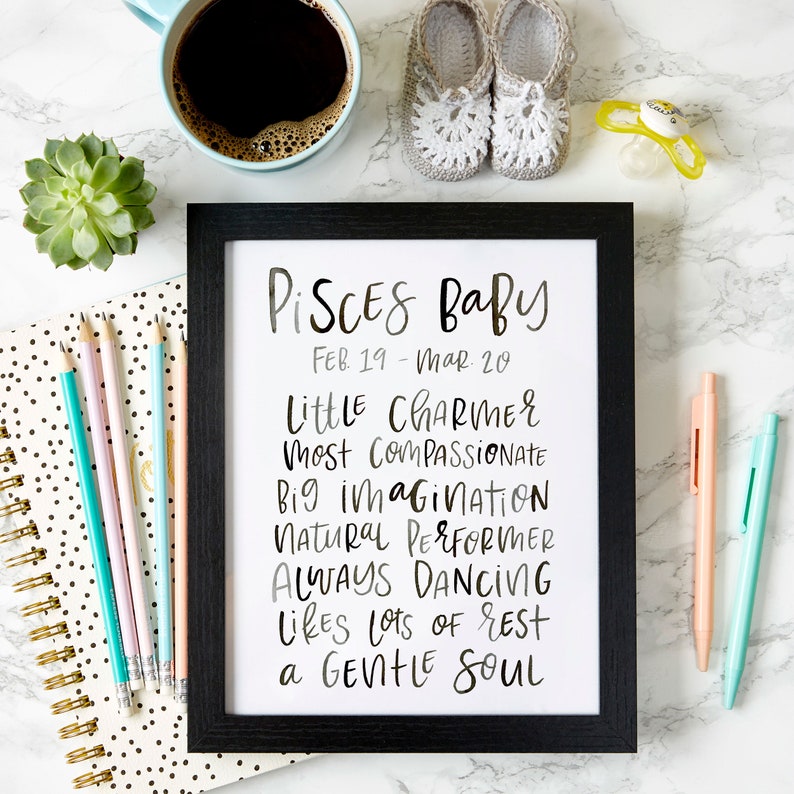 Pisces Baby
Feb. 19 - Mar. 20
Little Charmer
Most Compassionate
Big Imagination
Natural Performer
Always Dancing
Likes lots of rest
a Gentle Soul